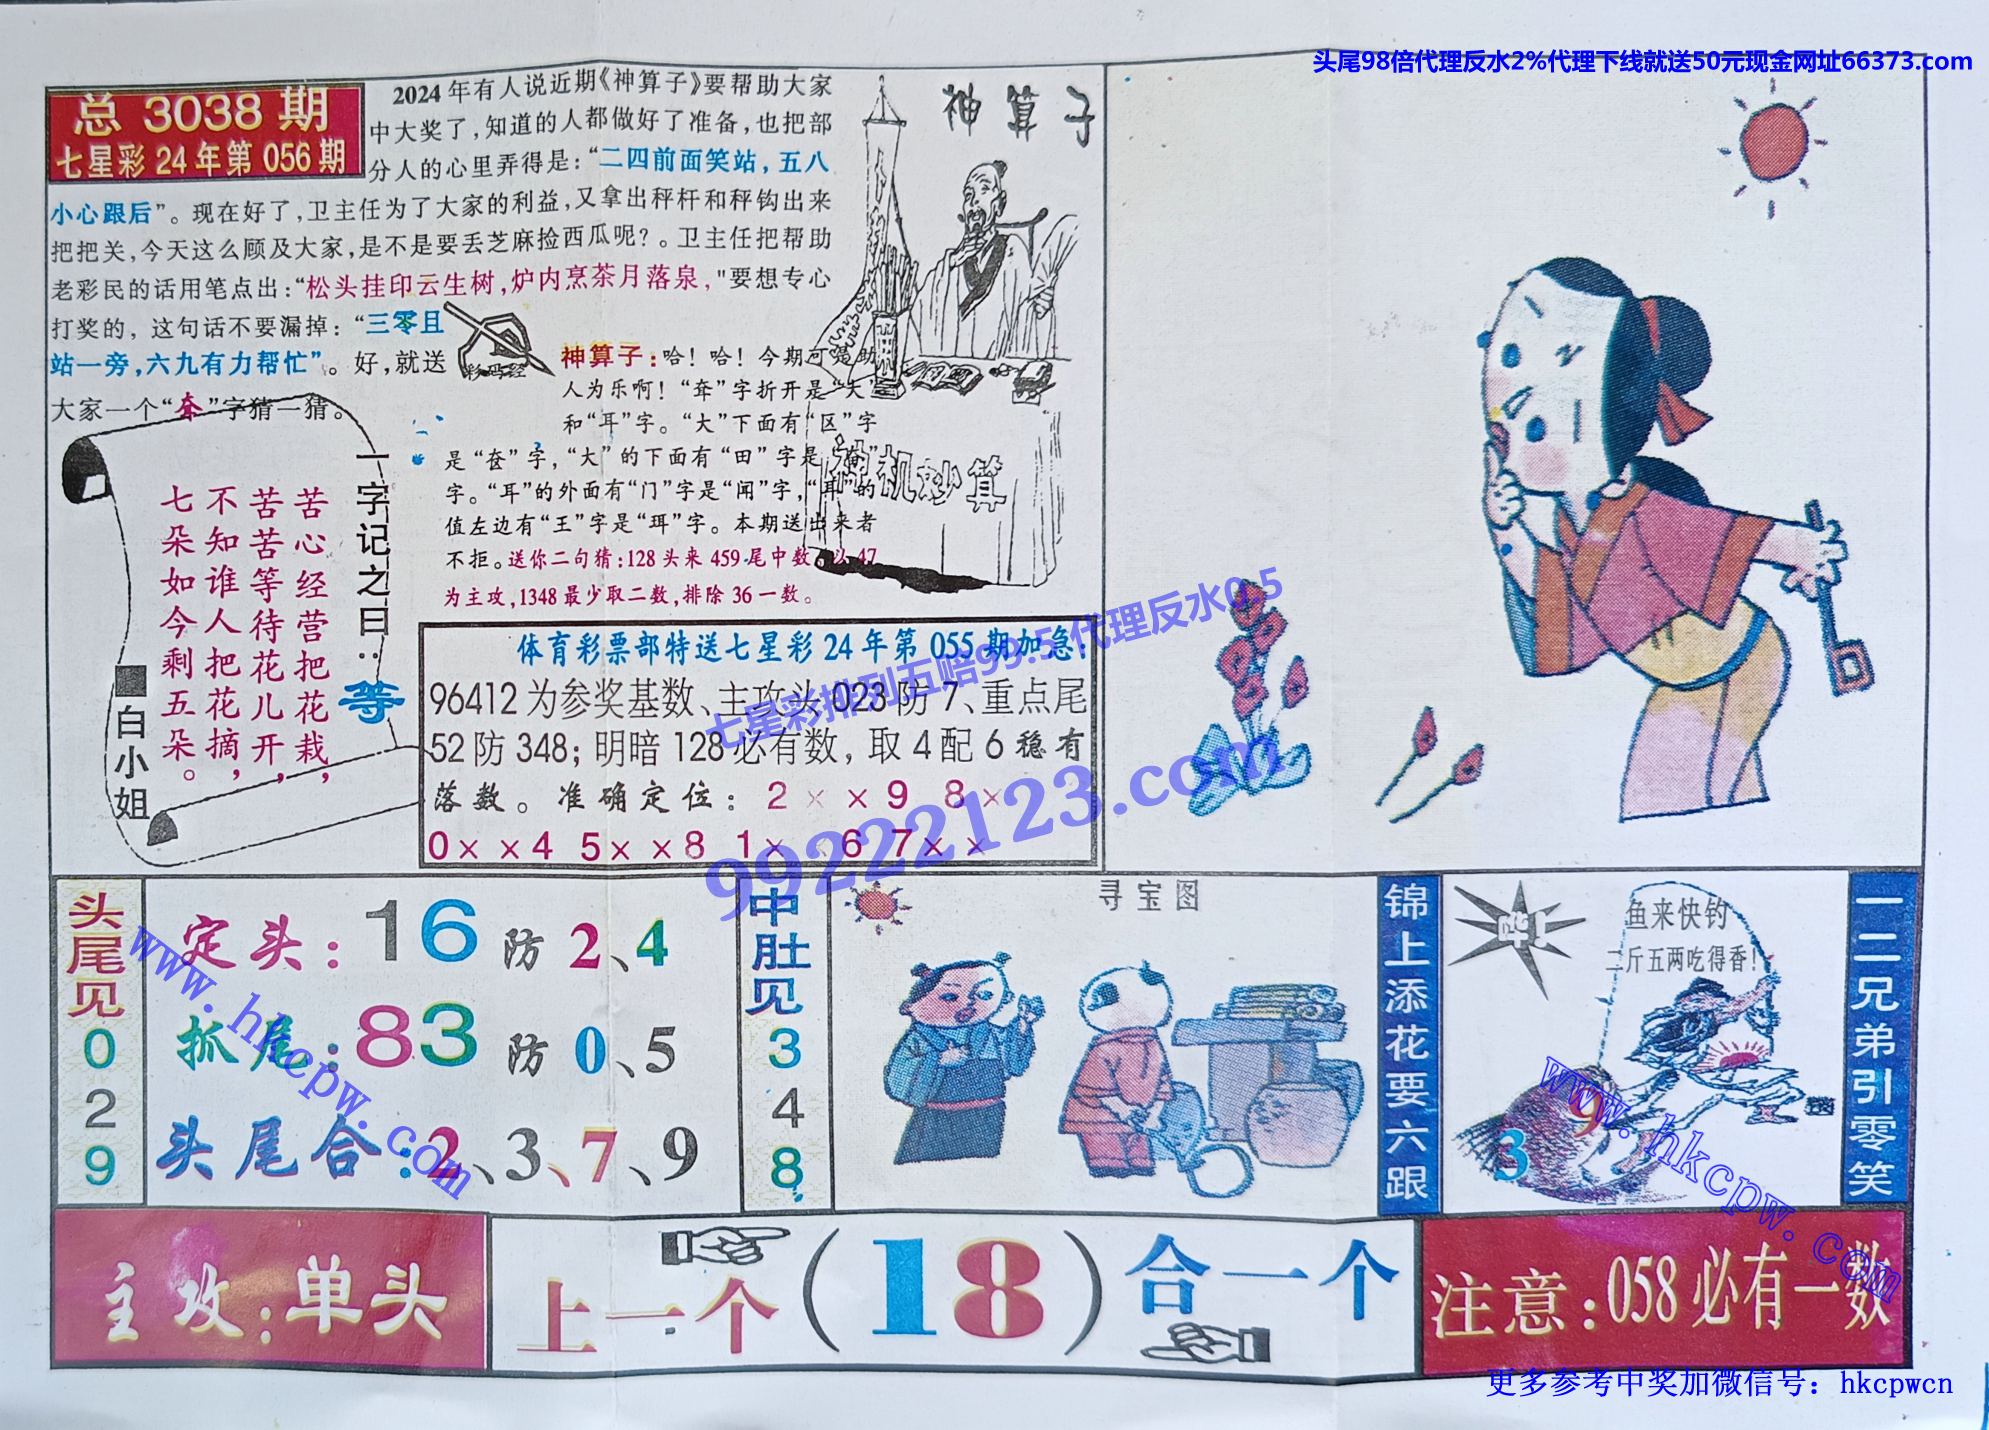 头尾98倍代理反水2%代理下线就送50元现金网址66373.com
总 3038 期
七星彩 24 年第 056 期
2024 年有人说近期《神算子》要帮助大家
中大奖了，知道的人都做好了准备，也把部
分人的心里弄得是：“二四前面笑站，五八
小心跟后”。现在好了，卫主任为了大家的利益，又拿出秤杆和秤钩出来
把把关，今天这么顾及大家，是不是要丢芝麻捡西瓜呢？。卫主任把帮助
老彩民的话用笔点出：“松头挂印云生树，炉内烹茶月落泉，"要想专心
打奖的，这句话不要漏掉：“三零且
站一旁，六九有力帮忙”。好，就送
大家一个“耷”字猜一猜。
神算子
神机妙算
神算子：哈！哈！今期可是助
人为乐啊！“耷”字折开是“大”
和“耳”字。“大”下面有“区”字
是“奁”字，“大”的下面有“田”字是“奋”
字。“耳”的外面有“门”字是“闻”字，“耳”的
值左边有“王”字是“珥”字。本期送出来者
不拒。送你二句猜：128 头来 459 尾中数，以 47
为主攻，1348 最少取二数，排除 36 一数。
一字记之曰：等
苦心经营把花栽，
苦苦等待花儿开，
不知谁人把花摘，
七朵如今剩五朵。
■白小姐
体育彩票部特送七星彩 24 年第 055 期加急：
96412 为参奖基数、主攻头 023 防 7、重点尾
52 防 348；明暗 128 必有数，取 4 配 6 稳有
落数。准确定位：2 × × 9 8 ×
0 × × 4 5 × × 8 1 × 6 7 × ×
七星彩排列五赔99.5 代理反水0.5
99222123.com
头尾见 0 2 9
定头：16 防 2、4
抓尾：83 防 0、5
头尾合：2、3、7、9
中肚见 3 4 8
寻宝图
锦上添花要六跟
鱼来快钓
二斤五两吃得香！
3 9
一二兄弟引零笑
www.hkcpw.com
www.hkcpw.com
主攻：单头
上一个（18）合一个
注意：058 必有一数
更多参考中奖加微信号：hkcpwcn